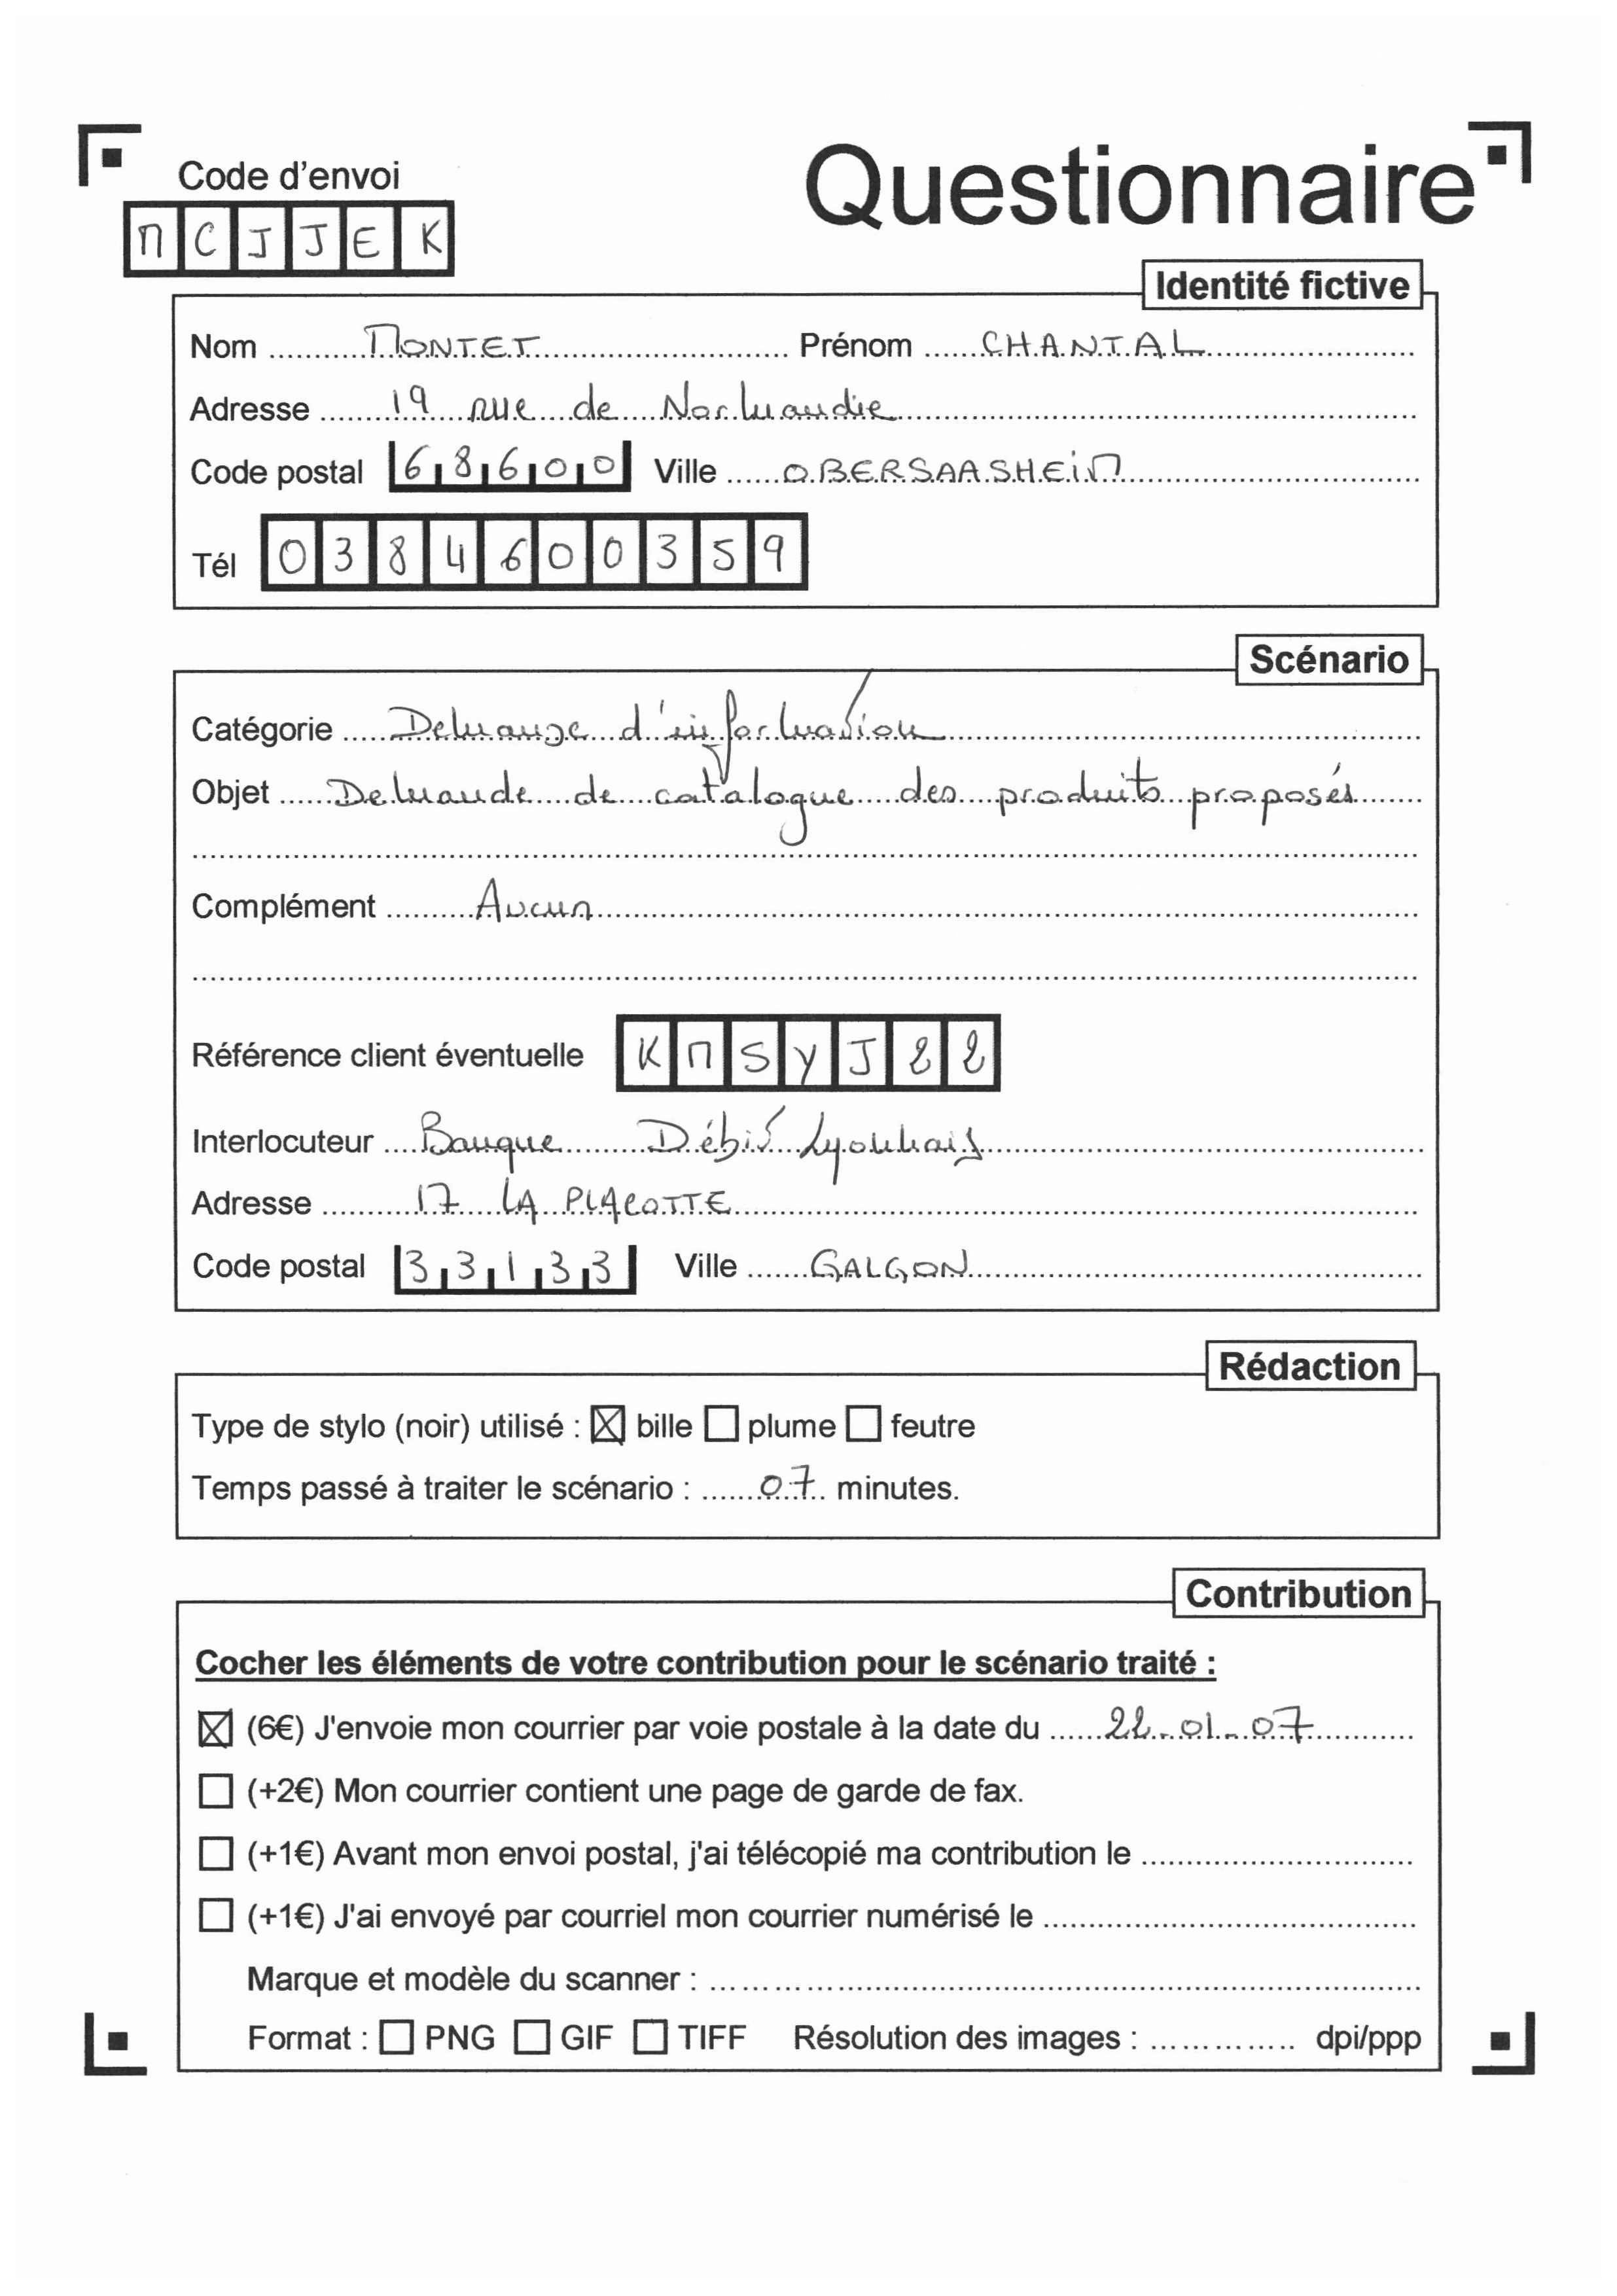 Code d'envoi
Questionnaire
MCJJEK
Identité fictive
Nom MONTET Prénom CHANTAL
Adresse 19 rue de Normandie
Code postal 68600 Ville OBERSAASHEiM
Tél 0384600359
Scénario
Catégorie Demande d'information
Objet Demande de catalogue des produits proposés
Complément Aucun
Référence client éventuelle KMSYJ22
Interlocuteur Banque Débit Lyonnais
Adresse 17 LA PLACOTTE
Code postal 33133 Ville GALGON
Rédaction
Type de stylo (noir) utilisé : ☒ bille ☐ plume ☐ feutre
Temps passé à traiter le scénario : 07 minutes.
Contribution
Cocher les éléments de votre contribution pour le scénario traité :
☒ (6€) J'envoie mon courrier par voie postale à la date du 22-01-07
☐ (+2€) Mon courrier contient une page de garde de fax.
☐ (+1€) Avant mon envoi postal, j'ai télécopié ma contribution le
☐ (+1€) J'ai envoyé par courriel mon courrier numérisé le
Marque et modèle du scanner :
Format : ☐ PNG ☐ GIF ☐ TIFF Résolution des images : dpi/ppp